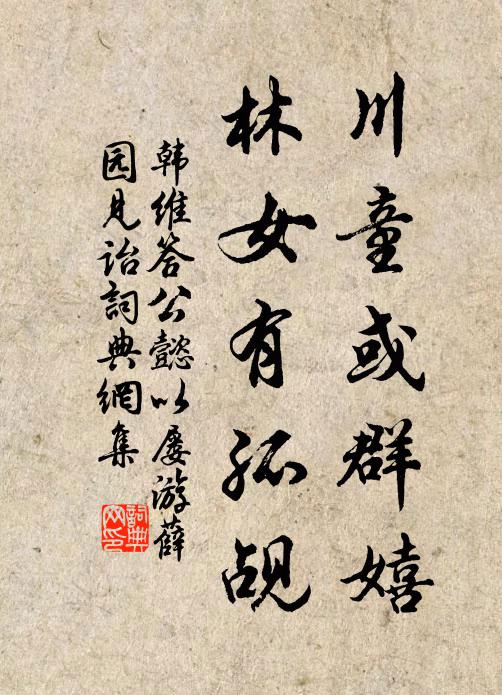 川童或群嬉
林女有孤觇
韩维答公懿以屡游薛
园见诒詞典網集
詞典網印